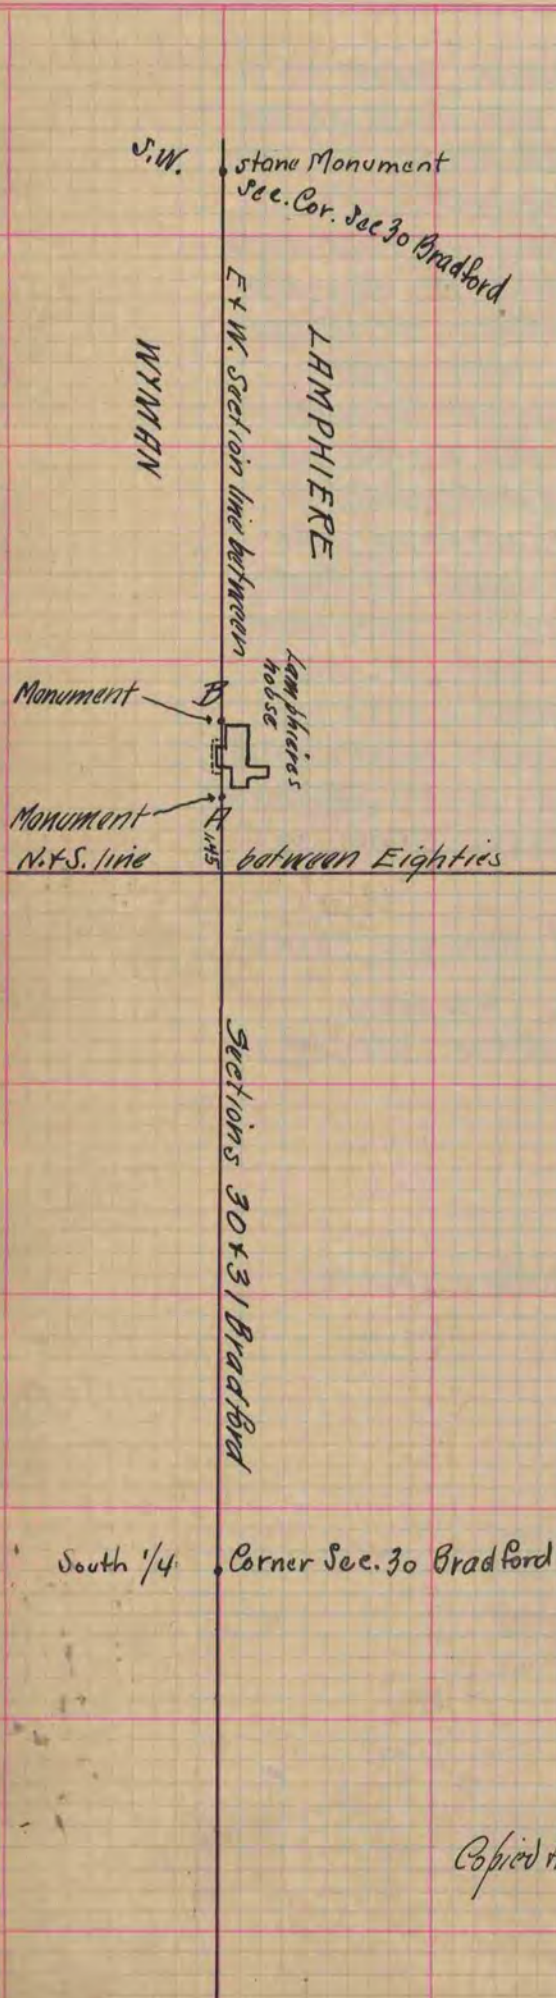 S.W. stone Monument
Sec. Cor. Sec 30 Bradford
E + W. Section line between
LAMPHIERE
WYMAN
Lamphieres
house
Monument B
Monument A
1.45
N.+S. line between Eighties
Sections 30+31 Bradford
South 1/4 Corner Sec. 30 Bradford
Copied